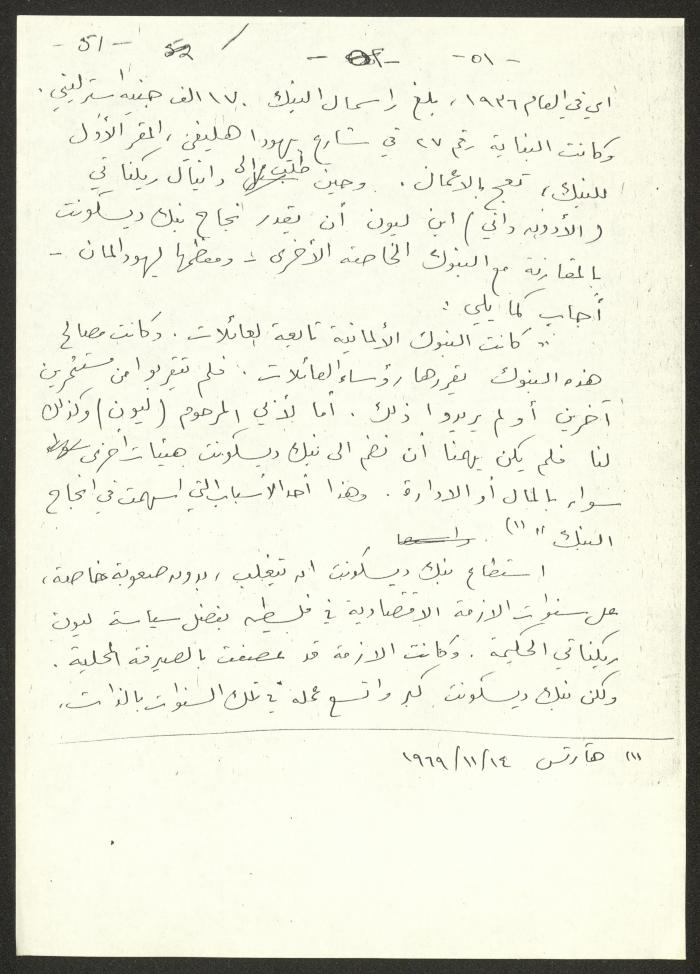 - 51 - 52 - ٥٢ - - ٥١ -
اي في العام ١٩٣٦، بلغ راسمال البنك ١٧٠ الف جنيه استرليني.
وكانت البناية رقم ٢٧ في شارع يهودا هليفي، المقر الأول
للبنك، تعج بالاعمال. وحين طلب الى دانيال ريكناتي
(الأدون داني) ابن ليون أن يقدر نجاح بنك ديسكونت
بالمقارنة مع البنوك الخاصة الأخرى - ومعظمها ليهود المان -
أجاب كما يلي:
"كانت البنوك الألمانية تابعة لعائلات. وكانت مصالح
هذه البنوك يقررها رؤساء العائلات. فلم يتقربوا من مستثمرين
آخرين أو لم يريدوا ذلك. أما لأبي المرحوم (ليون) وكذلك
لنا فلم يكن يهمنا أن نضم الى بنك ديسكونت هيئات اخرى
سواء بالمال أو الادارة. وهذا أحد الأسباب التي اسهمت في انجاح
البنك" (١).
استطاع بنك ديسكونت ان يتغلب، بدون صعوبة خاصة،
على سنوات الازمة الاقتصادية في فلسطين بفضل سياسة ليون
ريكناتي الحكيمة. وكانت الازمة قد عصفت بالصيرفة المحلية.
ولكن بنك ديسكونت كبر واتسع عمله في تلك السنوات بالذات.
(١) هآرتس ١٩٦٩/١١/١٤